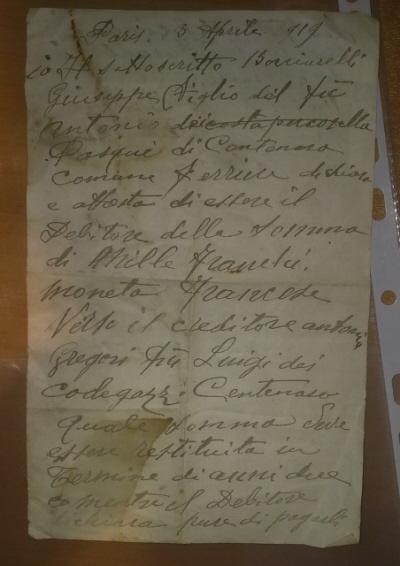 Paris. 3 Aprile 119
io Il sottoscritto Bonicurelli
Giuseppe figlio del fù
Antonio
Pasque di Centenaro
comune Ferriere dichiara
e attesta di essere il
Debitore della somma
di Mille Franchi.
moneta Francese
Verso il creditore antonio
Gregori fù Luigi dei
codegazzi Centenaro
quale somma deve
essere restituita in
Termine di anni due
e mentri il Debitore
dichiara pure di pagarli